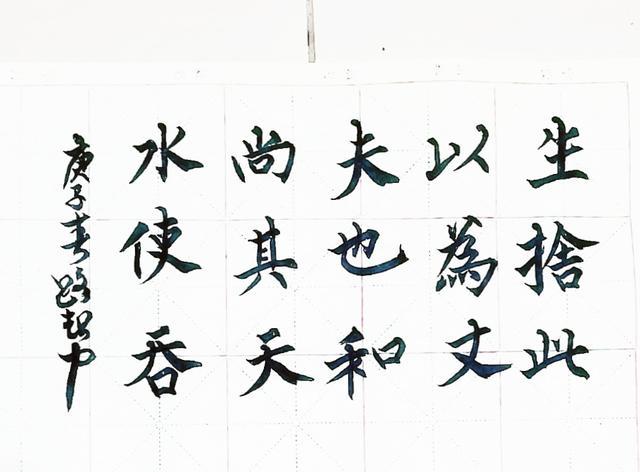 生捨此
以為丈
夫也和
尚其天
水使吞
庚子春路超中